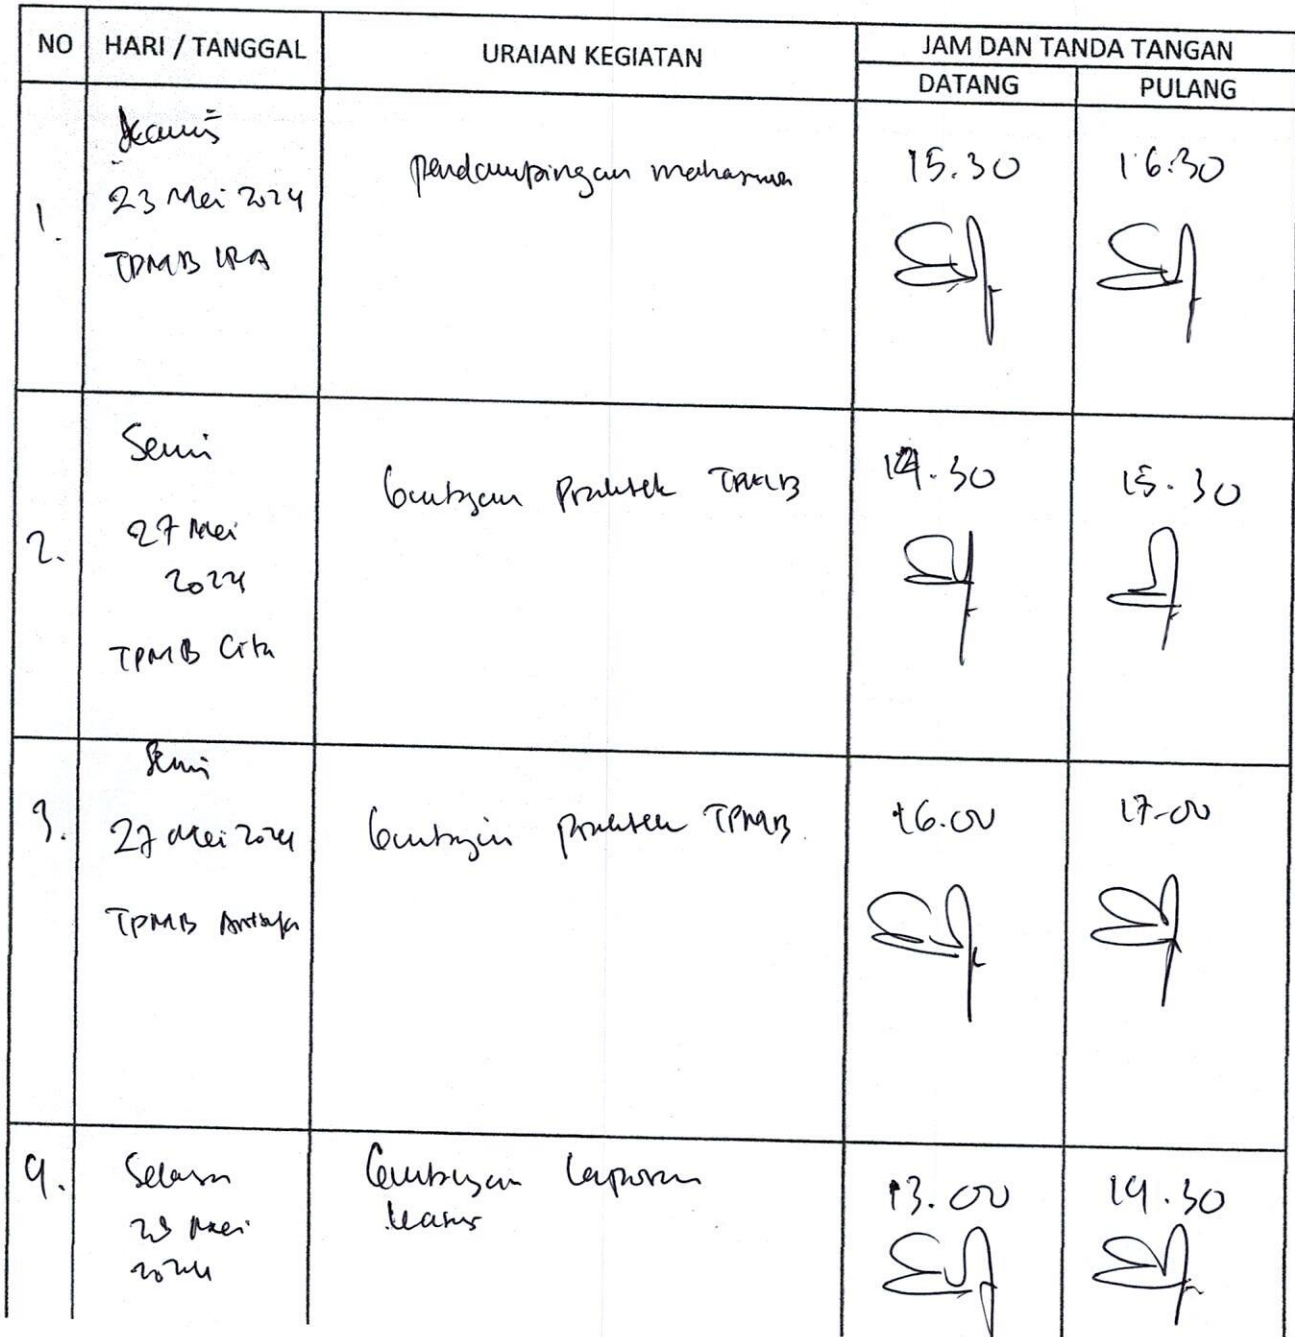 NO HARI / TANGGAL URAIAN KEGIATAN JAM DAN TANDA TANGAN
DATANG PULANG
1.
Kamis
23 Mei 2024
TPMB IRA
pendampingan mahasiswa
15.30 16.30
2.
Senin
27 Mei
2024
TPMB Cita
bimbingan Praktek TPMB
14.30 15.30
3.
Senin
27 Mei 2024
TPMB
bimbingan praktek TPMB
16.00 17.00
4.
Selasa
Mei
2024
bimbingan laporan
kasus
13.00 14.30